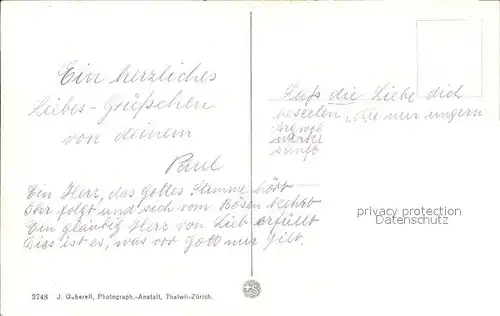 Ein herzliches
Liebes-Grüßchen
von deinem
Paul
Ein Herz, das Gottes Stimme hört
Ihr folgt und sich vom Bösen kehrt
Ein gläubig Herz von Lieb erfüllt
Dies ist es, was vor Gott nur gilt.
Laß die Liebe dich
beseelen, die nur ungern
sanft
privacy protection
Datenschutz
2748 J. Gaberell, Photograph.-Anstalt, Thalwil-Zürich.